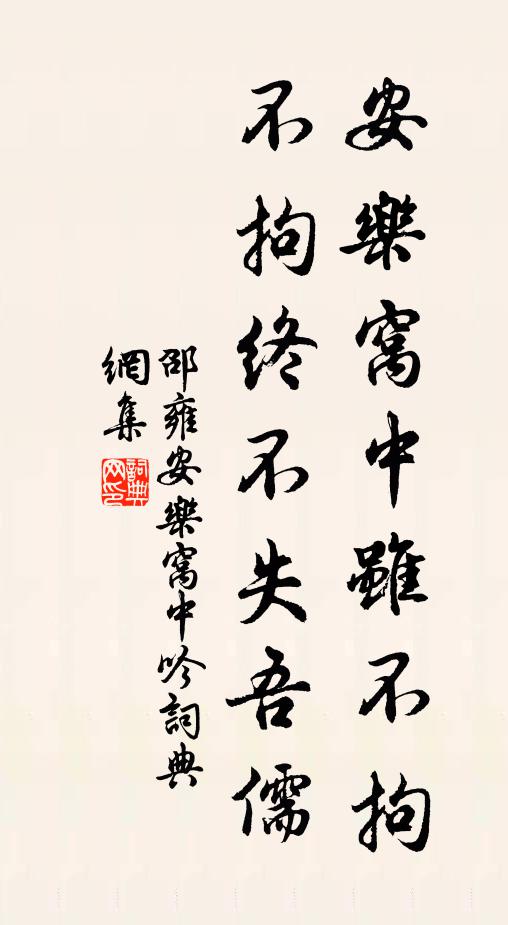 安樂窩中雖不拘
不拘終不失吾儒
邵雍安樂窩中吟詞典
網集
詞典
网印